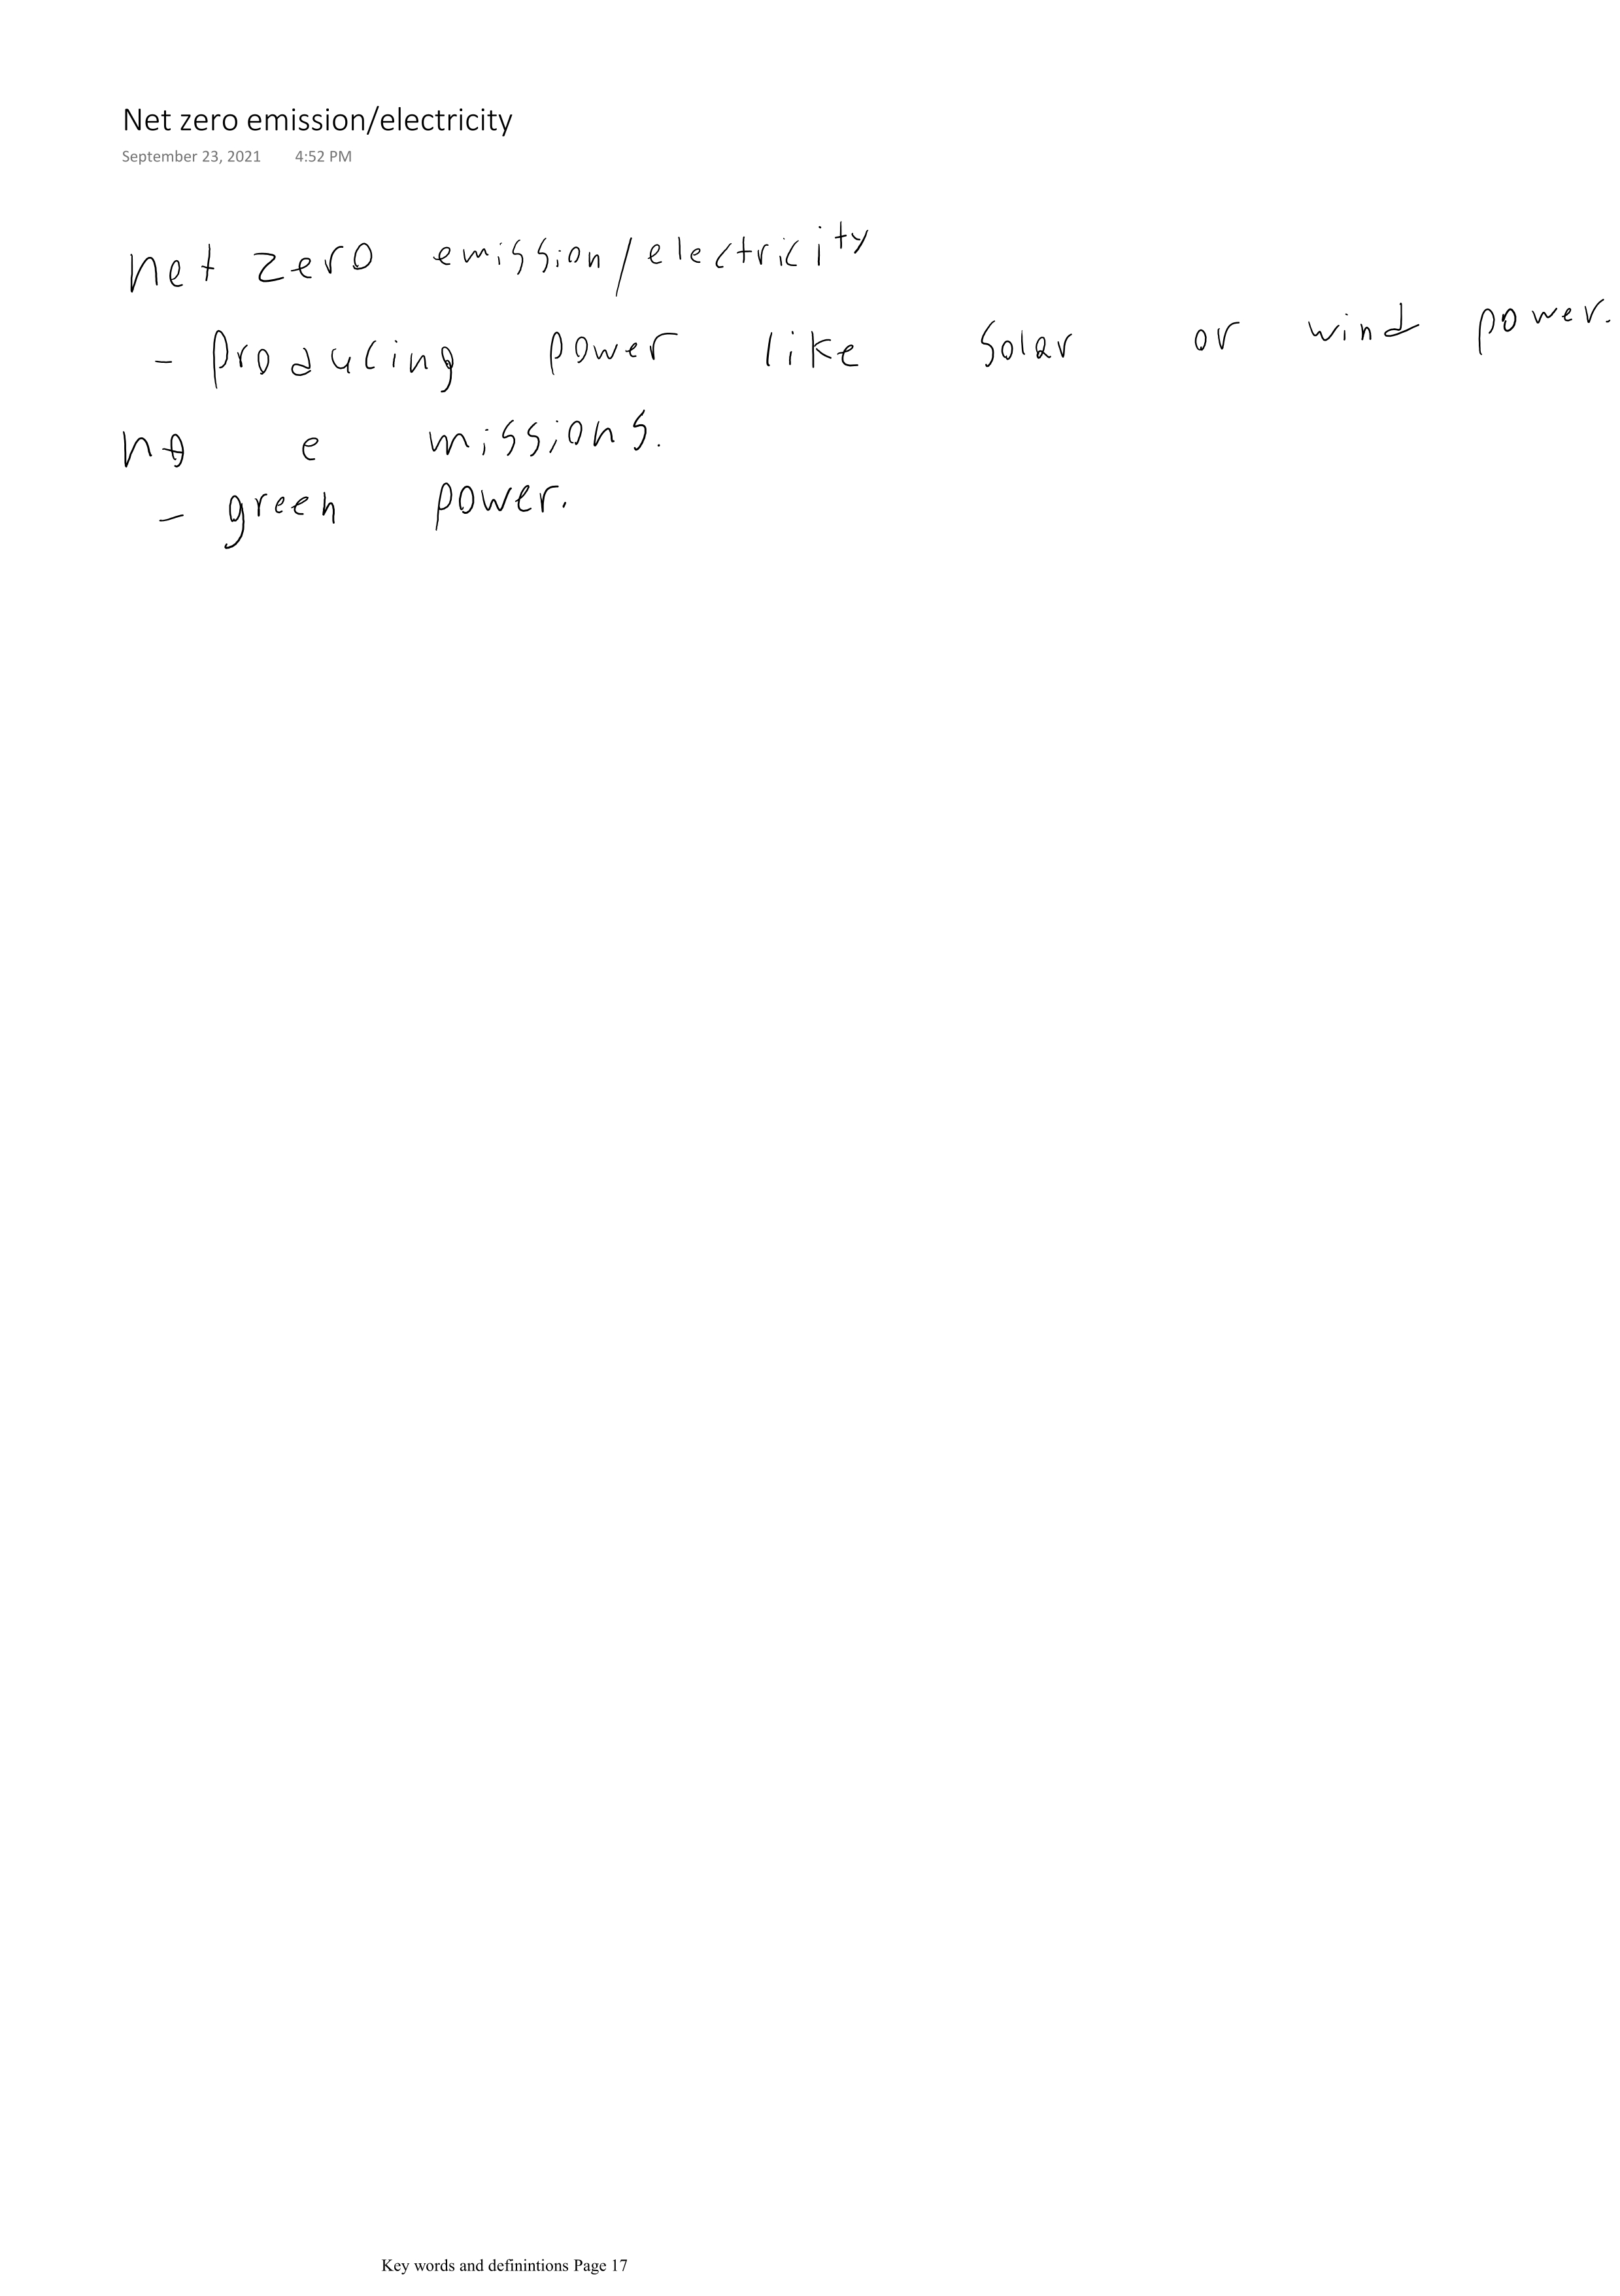 Net zero emission/electricity
September 23, 2021 4:52 PM
net zero emission/electricity
- producing power like solar or wind power.
no emissions.
- green power.
Key words and definintions Page 17